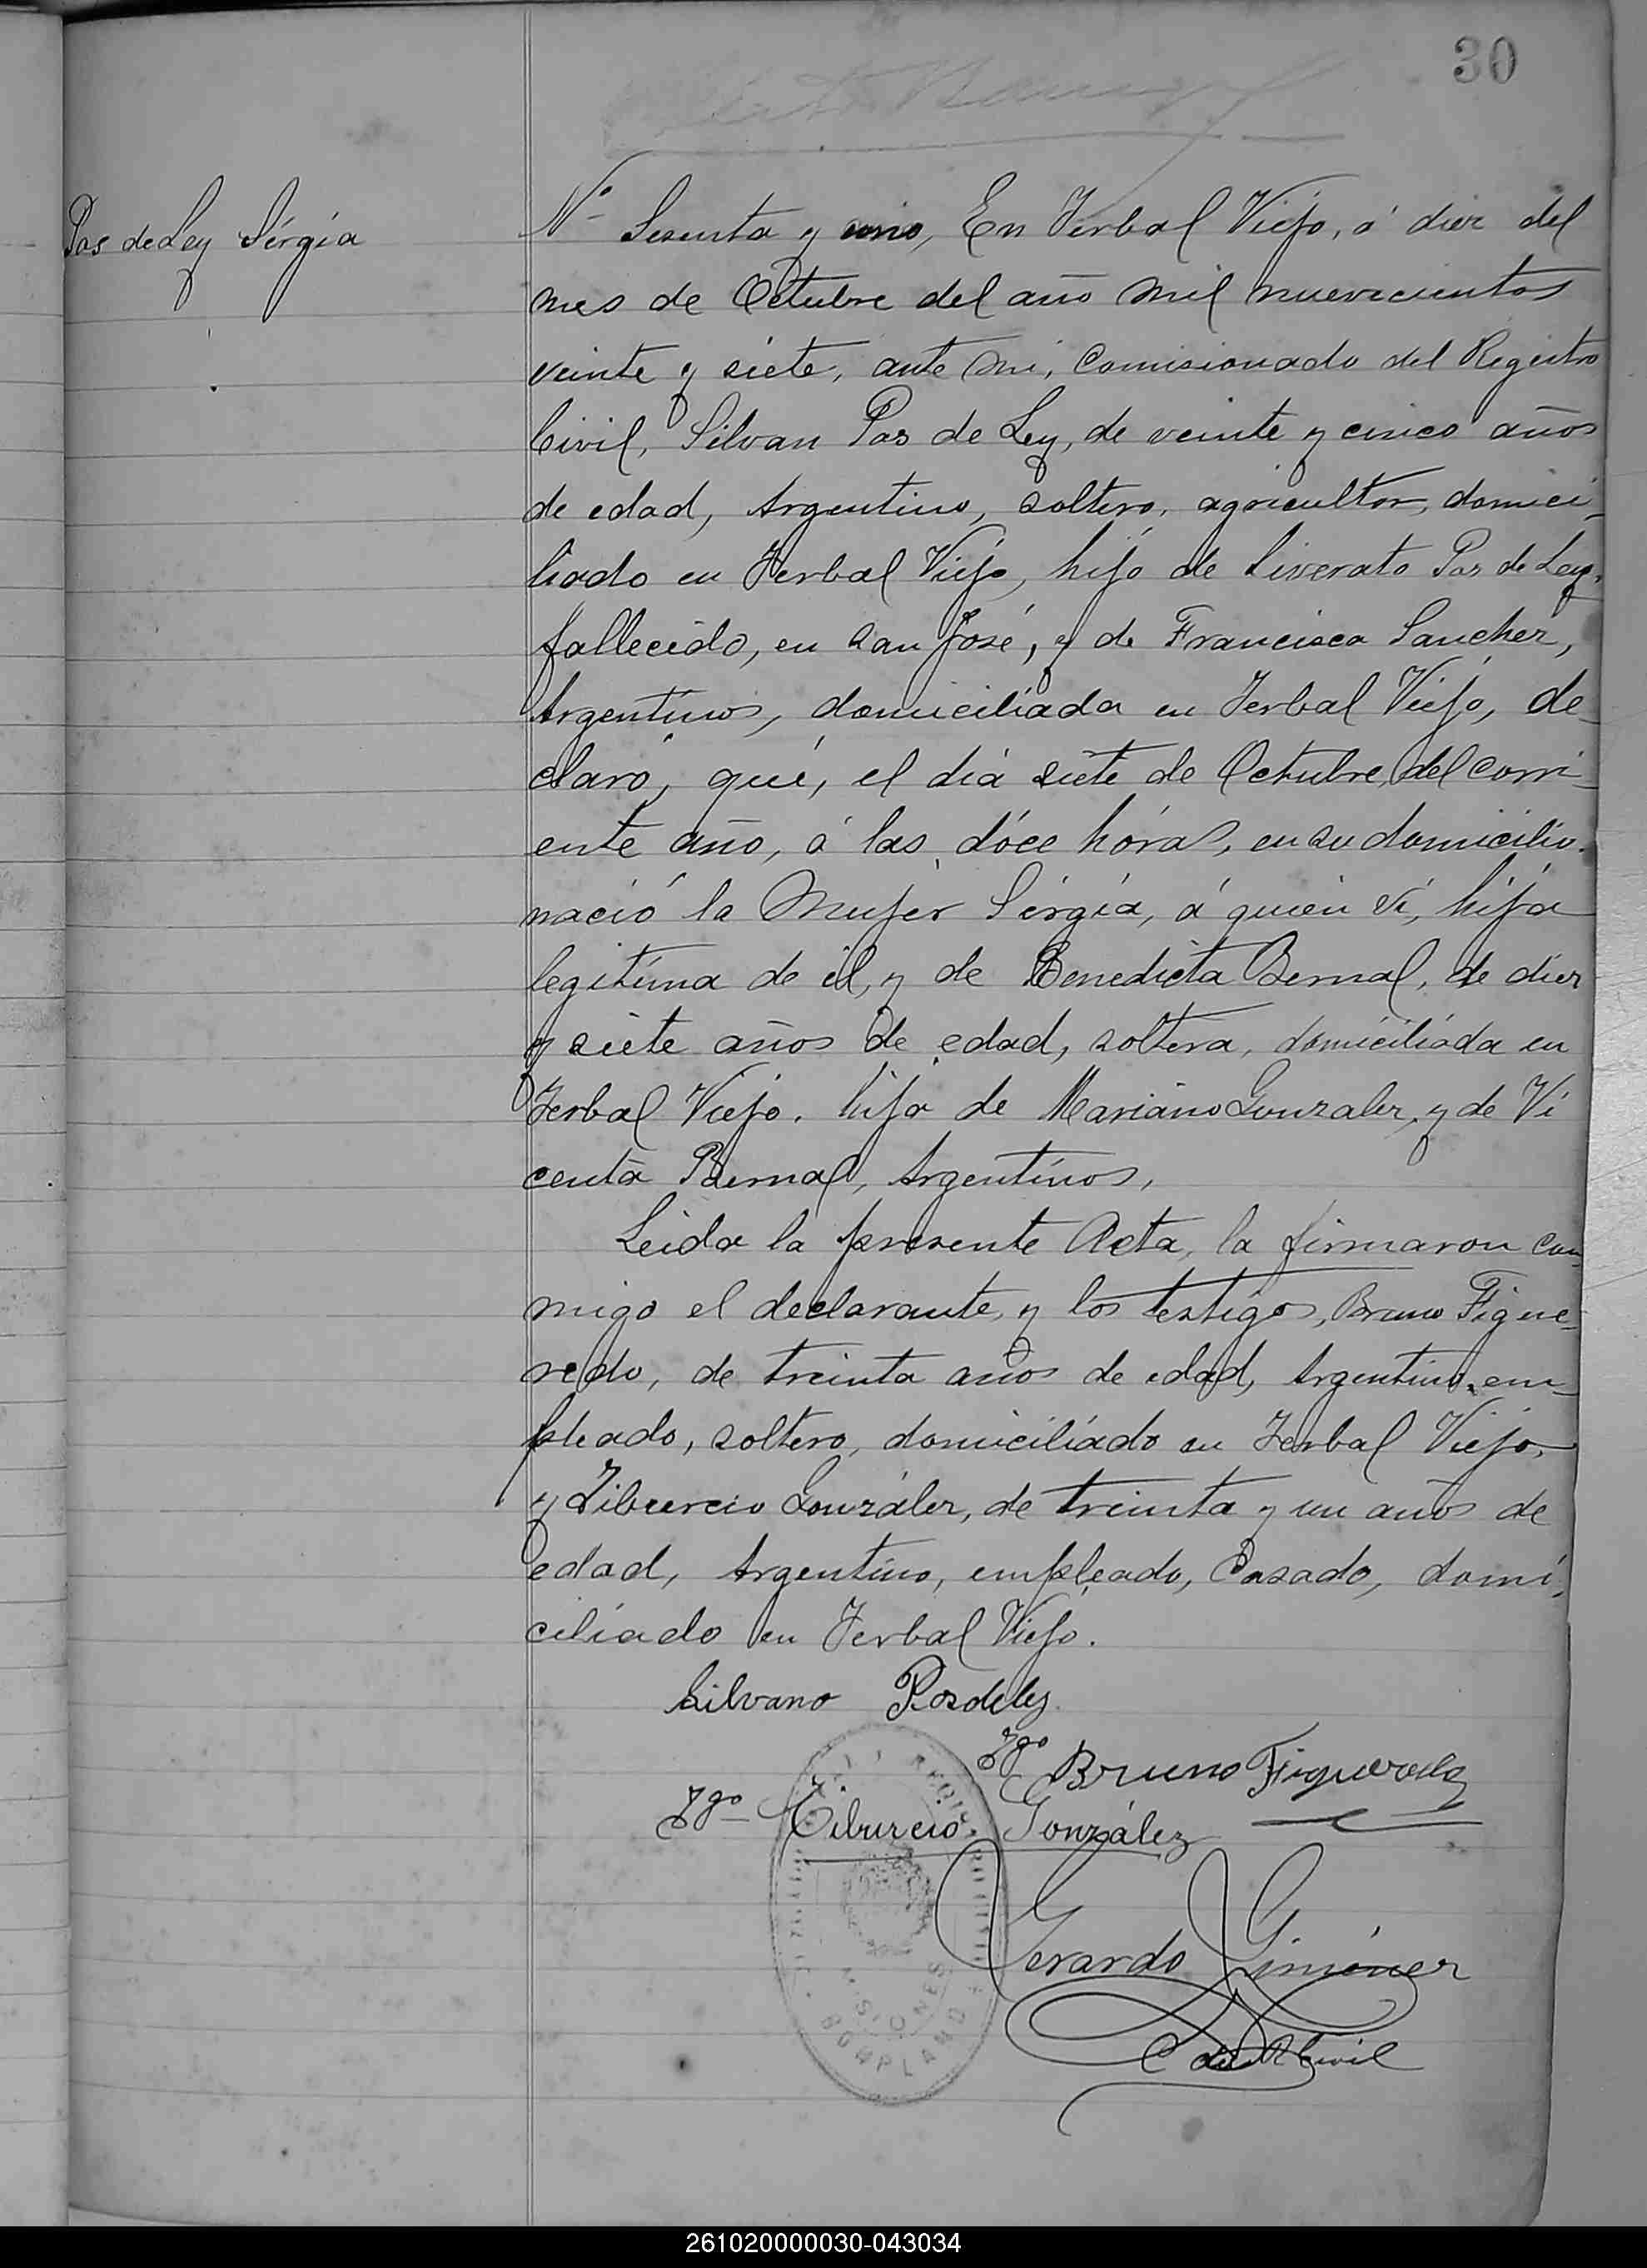 30
Pos de Ley Sérgia
Nº Sesenta y uno, En Yerbal Viejo, á diez del
mes de Octubre del año mil nuevecientos
veinte y siete, ante mi, Comisionado del Registro
Civil, Silvan Pos de Ley, de veinte y cinco años
de edad, Argentino, soltero, agricultor, domici-
liado en Yerbal Viejo, hijo de Liverato Pos de Ley,
fallecido, en San José, y de Francisca Sanchez,
Argentinos, domiciliada en Yerbal Viejo, de-
claró, que, el dia siete de Octubre, del corri-
ente año, á las dóce hóras, en su domicilio.
nació la Mujer Sérgia, á quien ví, hija
legitima de él, y de Benedicta Bernal, de diez
y siete años de edad, soltera, domiciliada en
Yerbal Viejo. hija de Mariano Gonzalez, y de Vi
centa Bernal, Argentinos,
Leida la presente Acta, la firmaron con-
migo el declarante, y los testigos, Bruno Figue-
redo, de treinta años de edad, Argentino, em-
pleado, soltero, domiciliado en Yerbal Viejo,
y Tiburcio Gonzáler, de treinta y un años de
edad, Argentino, empleado, Casado, domi-
ciliado en Yerbal Viejo.
Silvano Posdeley
Tgo Bruno Figueredo
Tgo Tiburcio González
Gerardo Giménez
C del R Civil
MISIONES
BONPLAND
261020000030-043034